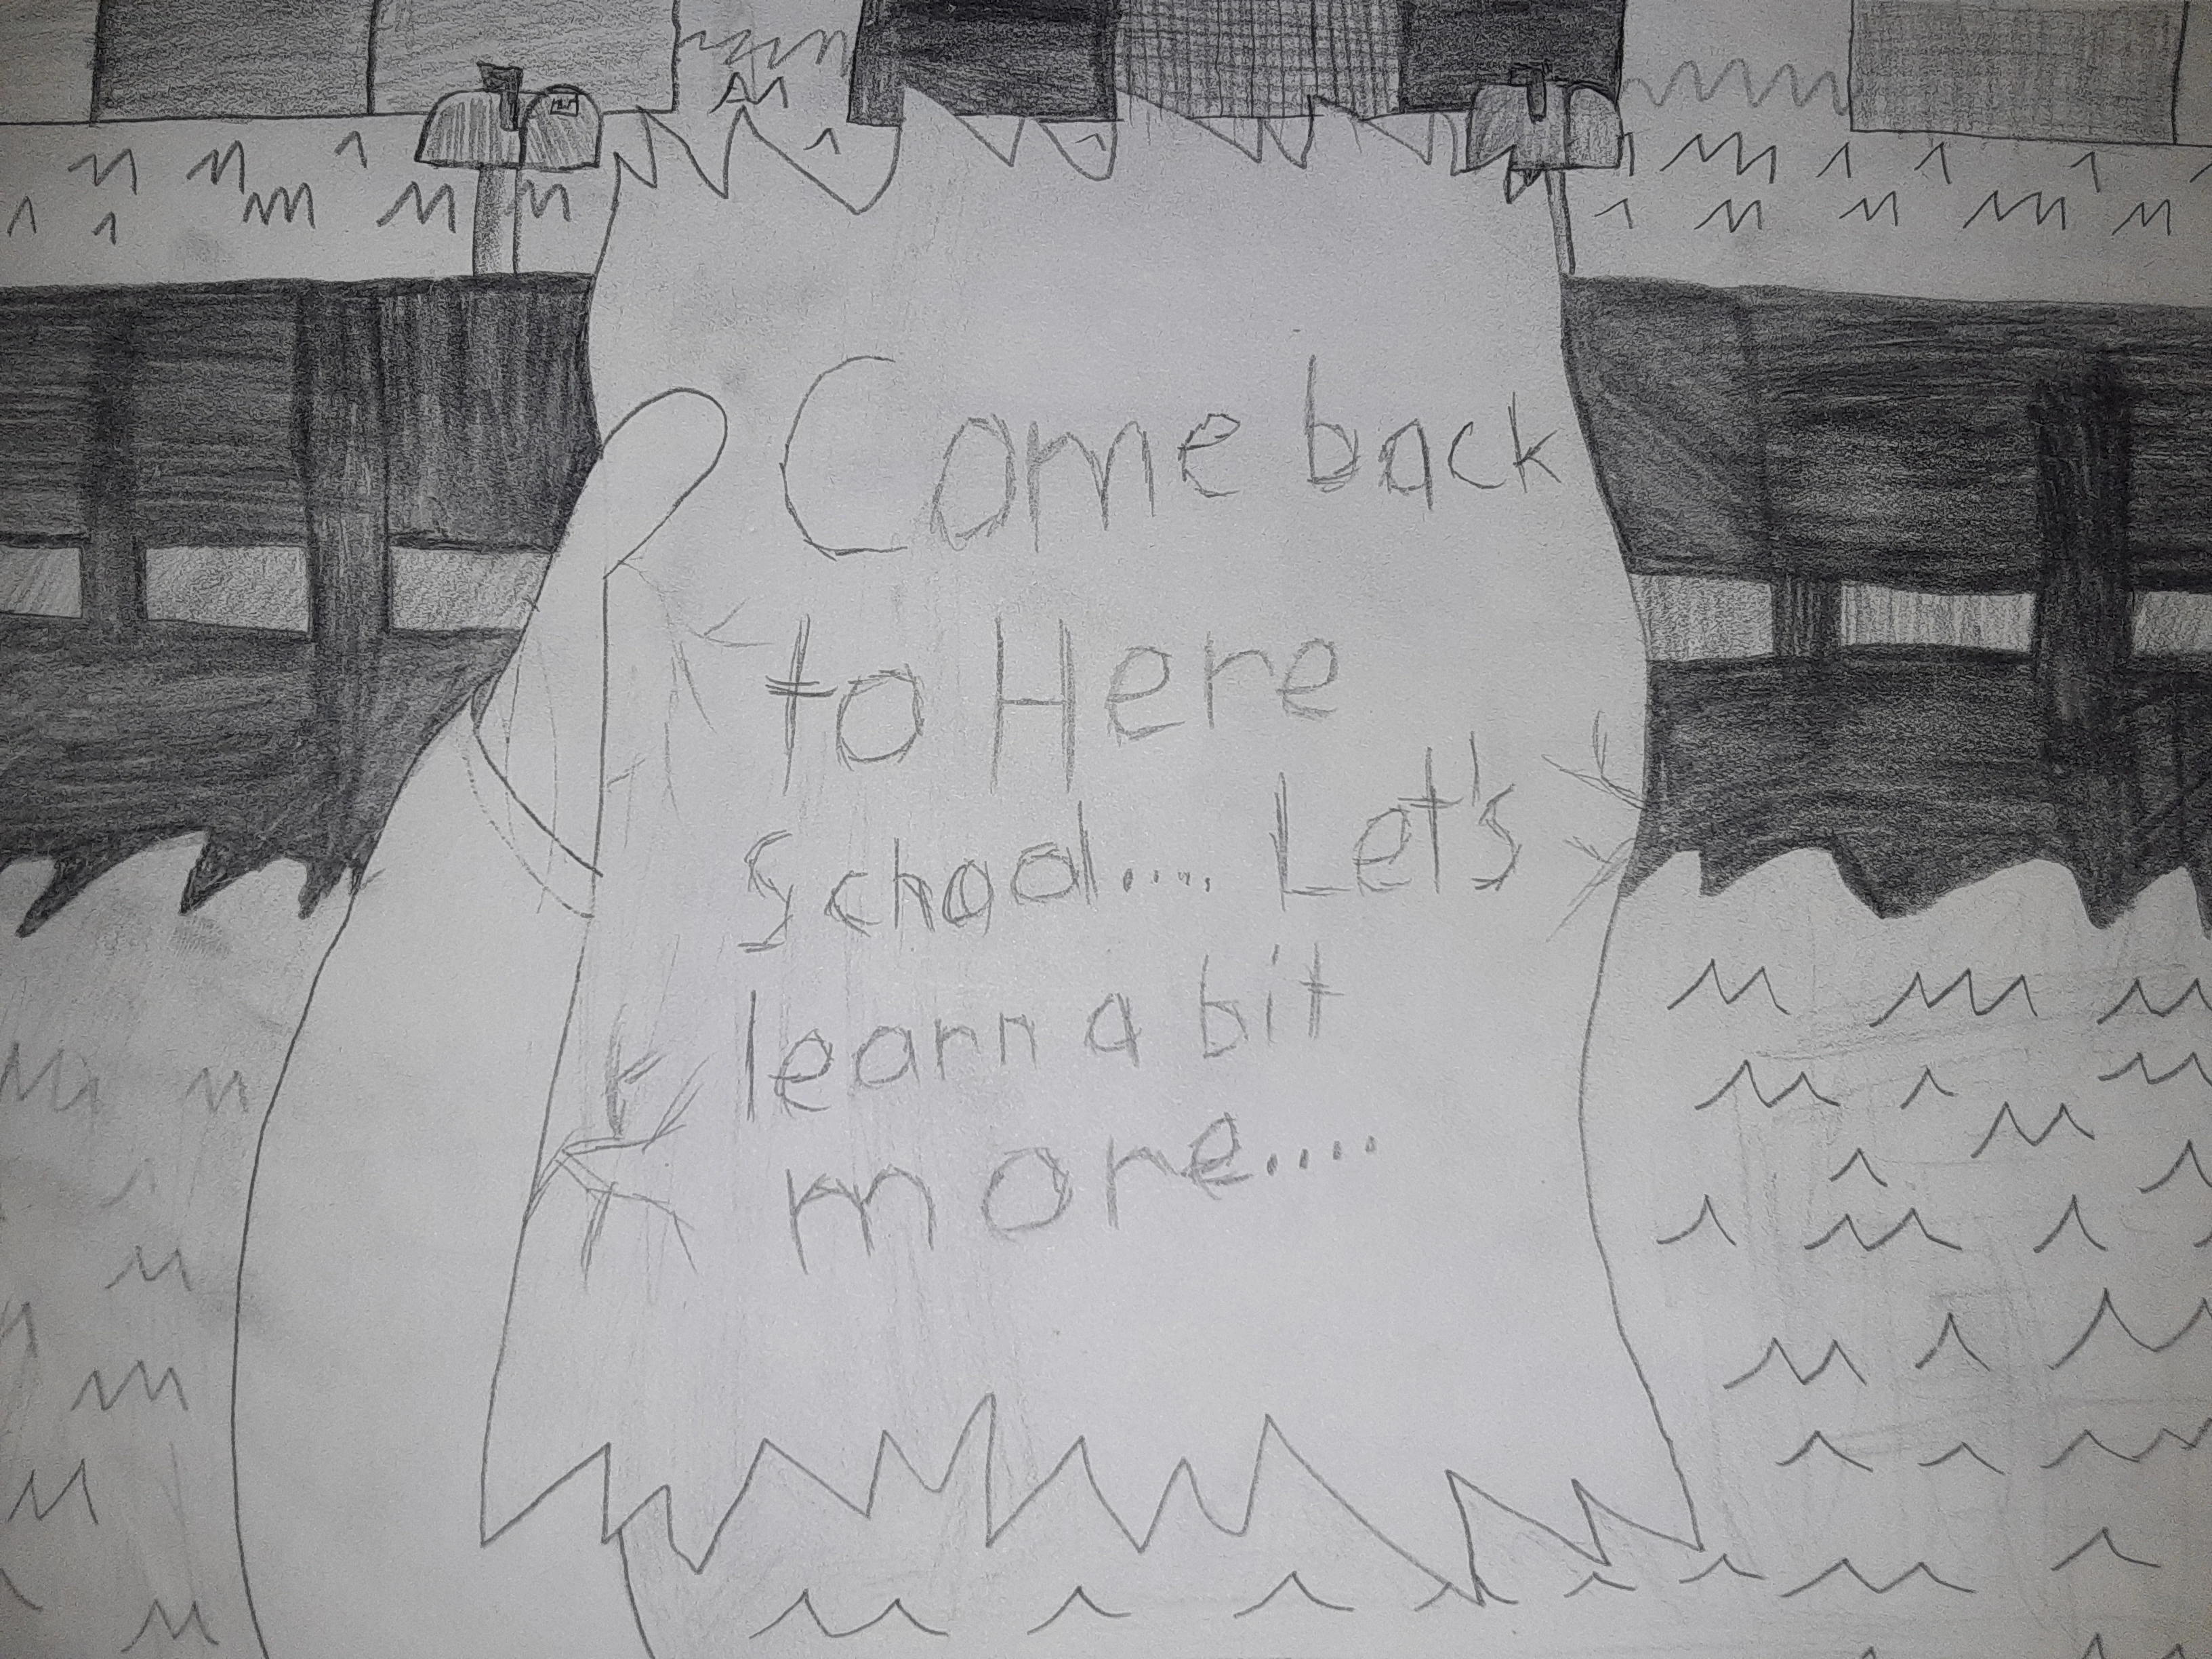 Come back
to Here
School.... Let's
learn a bit
more....